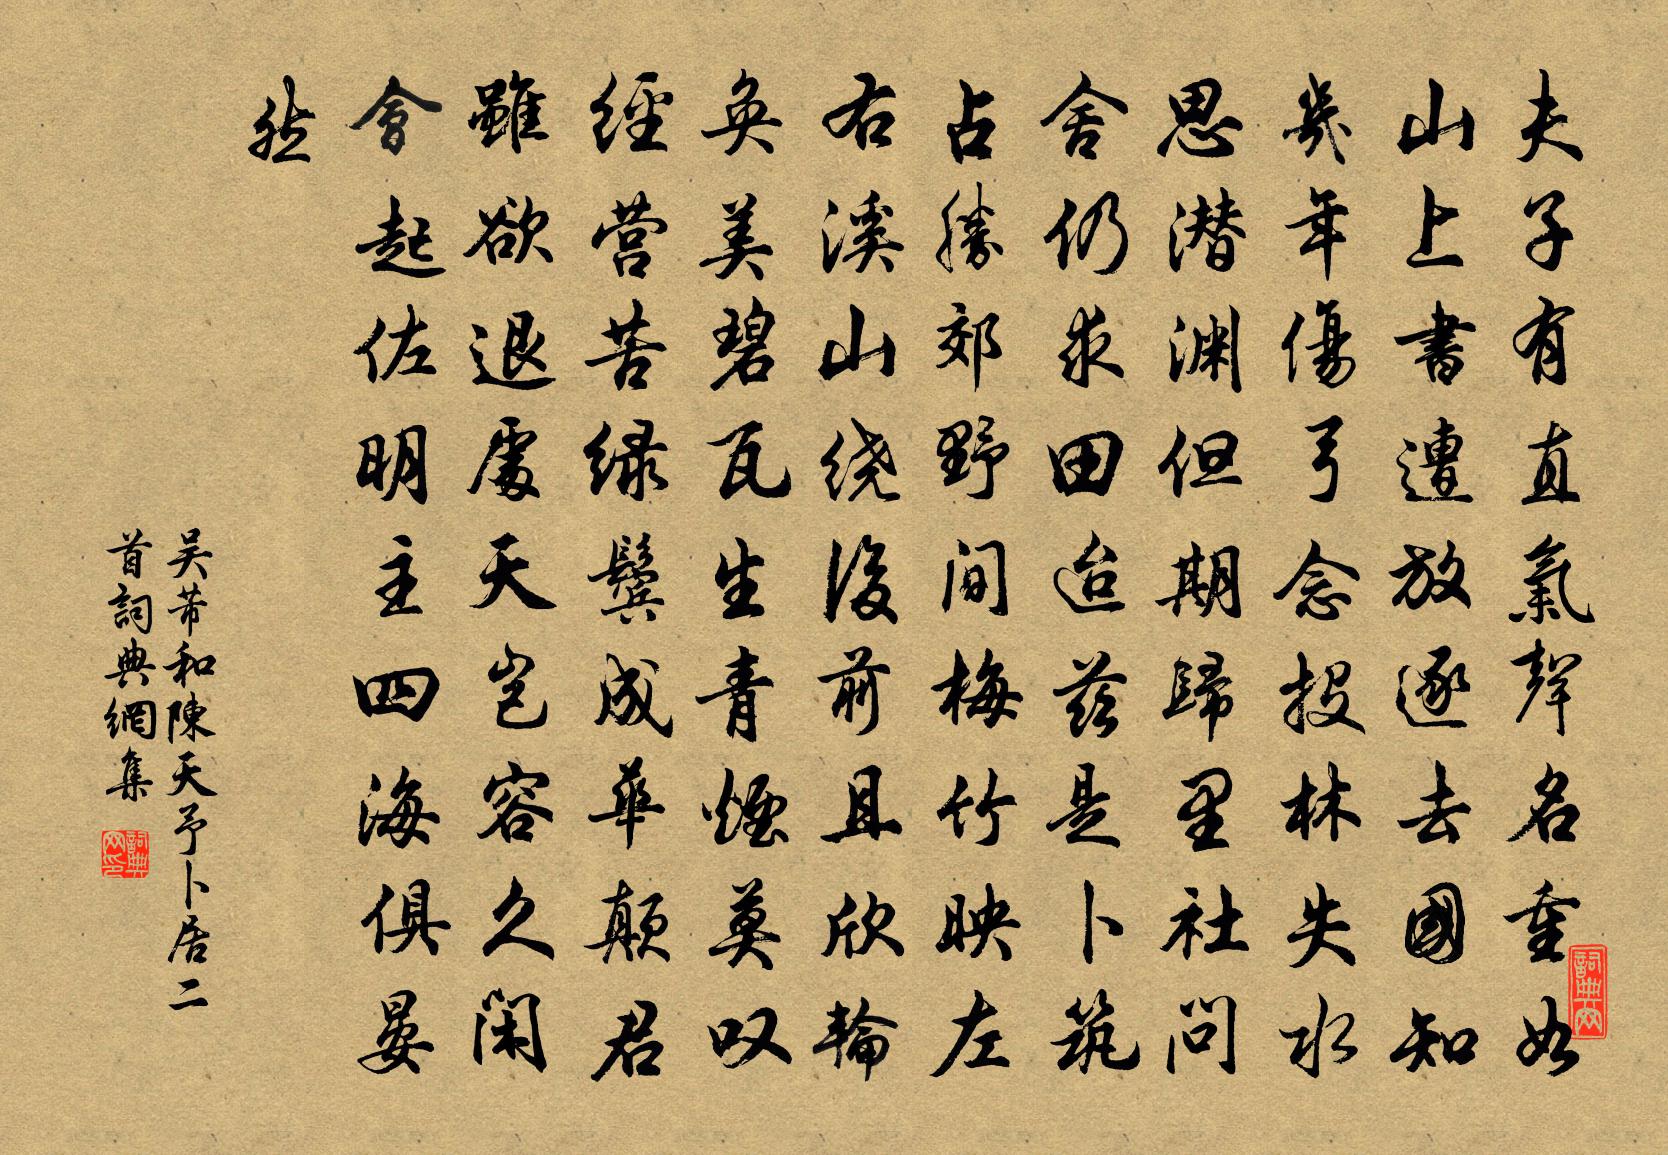 夫子有直氣聲名重如
山上書遭放逐去國知
幾年傷弓念投林失水
思潜渊但期歸里社问
舍仍求田迨兹是卜筑
占勝郊野间梅竹映左
右溪山绕後前且欣輪
奂美碧瓦生青煙莫叹
經营苦绿鬓成華颠君
雖欲退處天岂容久闲
會起佐明主四海俱晏
然
吴芾和陳天予卜居二
首詞典網集
詞典网
詞典网印